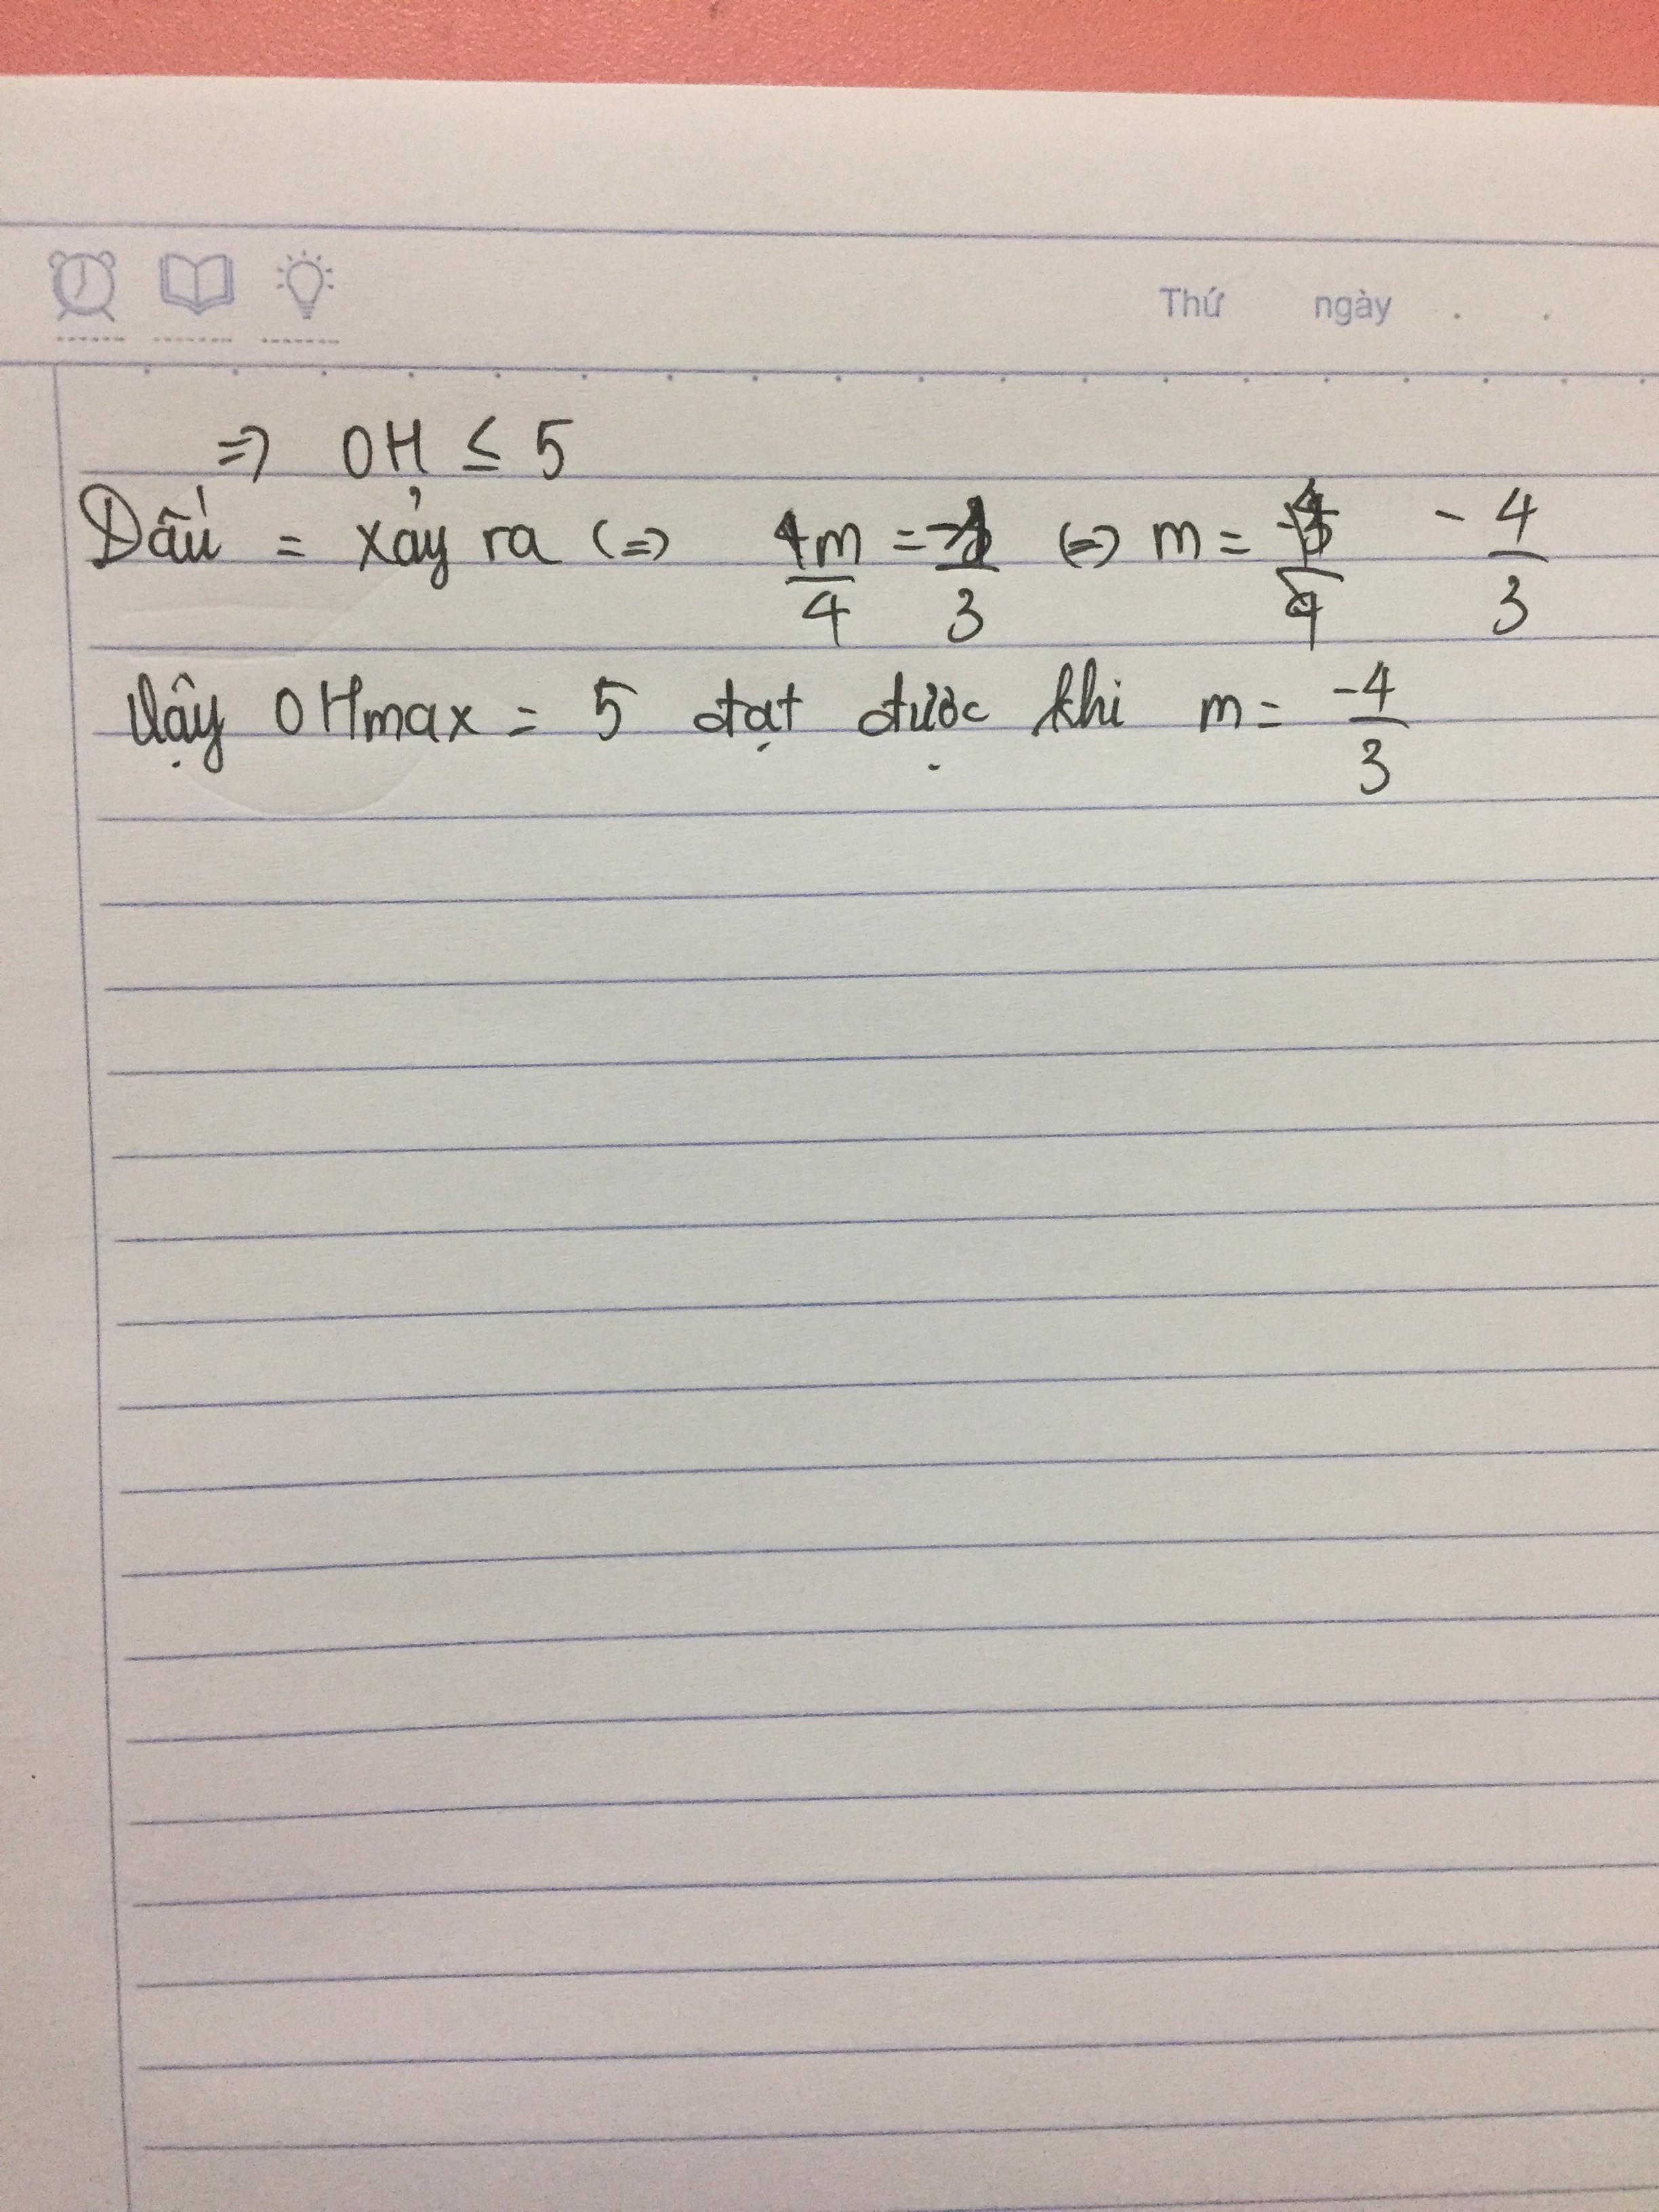 Thứ ngày . .
=> OH ≤ 5
Dấu = xảy ra <=> m/4 = /3 <=> m = -4/3
Vậy OHmax = 5 đạt được khi m = -4/3